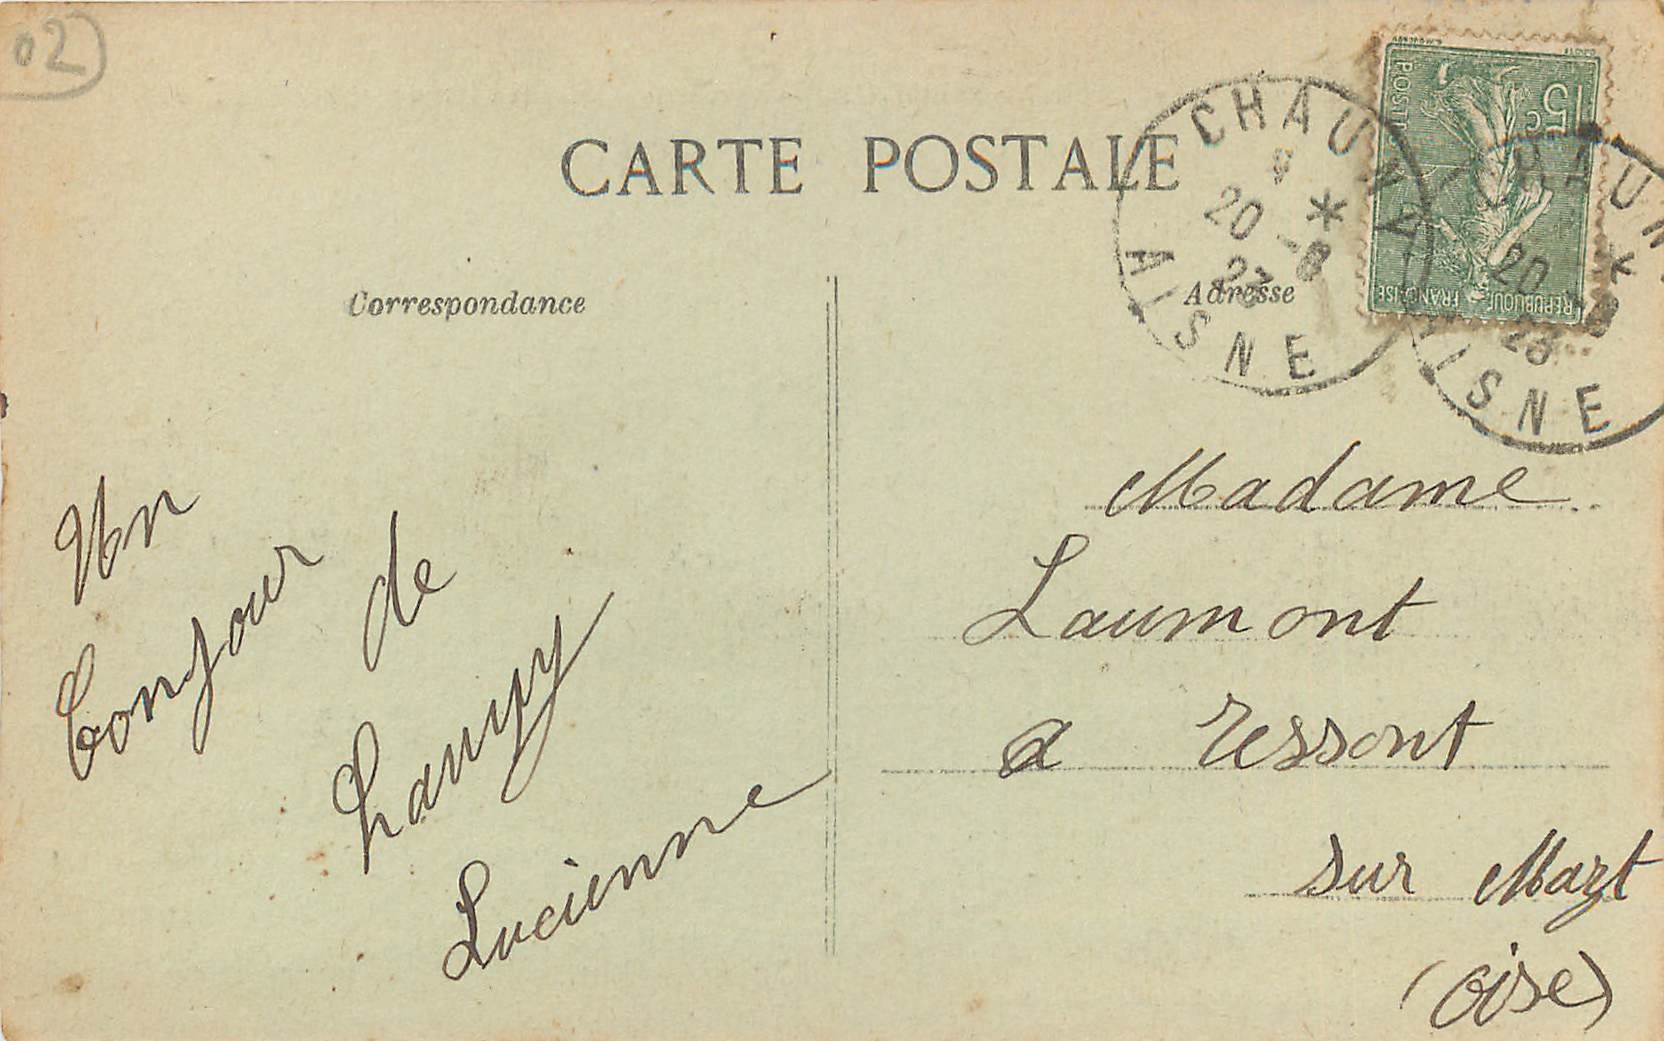 02
CARTE POSTALE
Correspondance
Adresse
CHAUNY
AISNE
20 -8
23
CHAUNY
AISNE
20 -8
23
POSTES
15c
REPUBLIQUE FRANÇAISE
Un
bonjour
de
Chauny
Lucienne
Madame
Laumont
a ressont
sur Mazt
(oise)